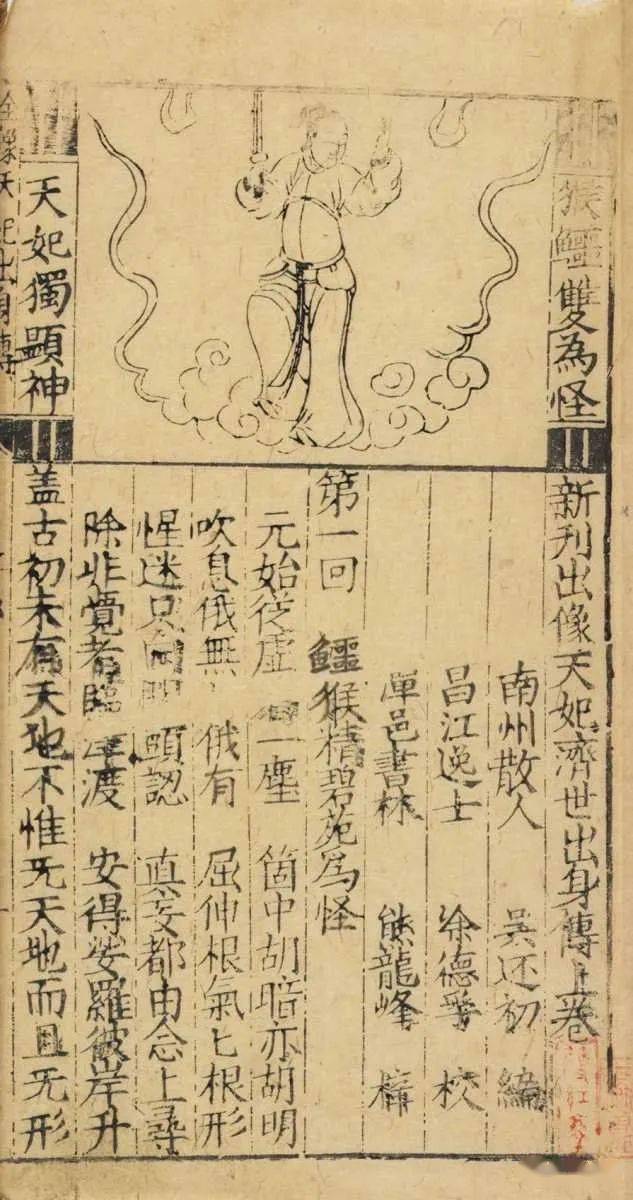 猴鱷雙為怪
天妃獨顯神
新刊出像天妃濟世出身傳上卷
南州散人 吳还初 編
昌江逸士 徐德孚 校
潭邑書林 熊龍峰 梓
第一回 鱷猴精碧苑為怪
元始從虛一塵 箇中胡暗亦胡明
吹息俄無俄有 屈伸根氣匕根形
惺迷只向頭認 真妄都由念上尋
除非覺者臨津渡 安得娑羅彼岸升
盖古初未有天地不惟无天地而且无形